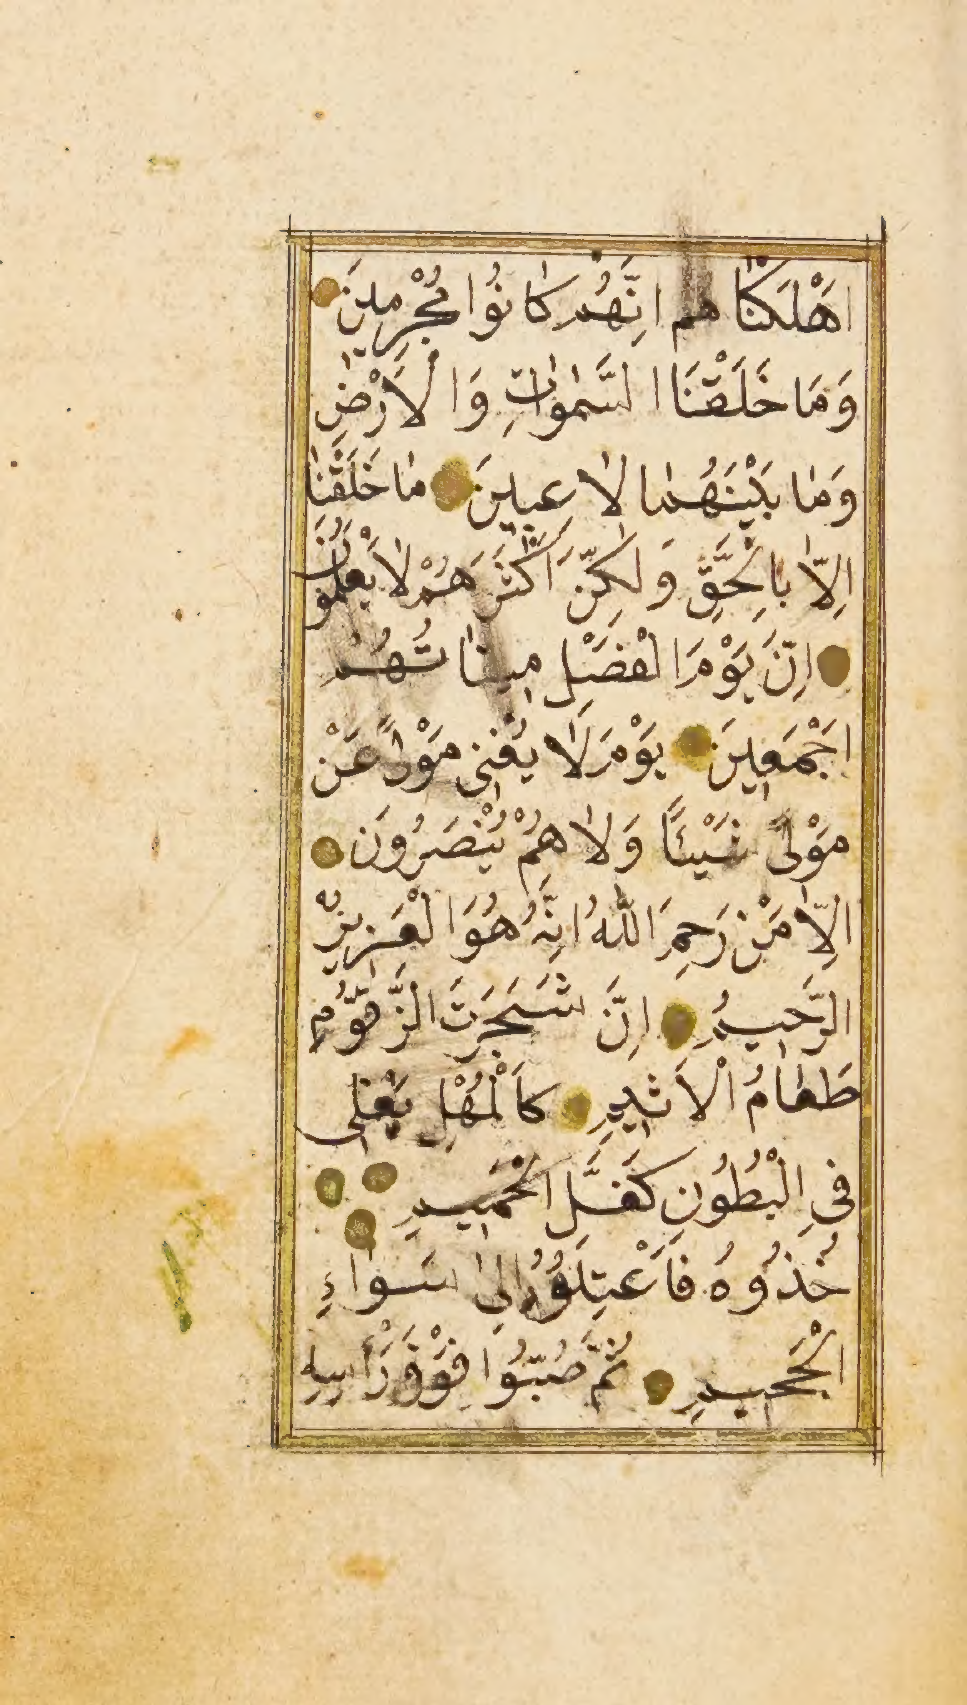 اَهْلَكْنَا هُمْ اِنَّهُمْ كَانُوا مُجْرِمِينَ
وَمَا خَلَقْنَا السَّمٰوَاتِ وَالْاَرْضِ
وَمَا بَيْنَهُمَا لَا عِبِينَ مَا خَلَقْنَا
اِلَّا بِالْحَقِّ وَلٰكِنَّ اَكْثَرَ هُمْ لَا يَعْلَمُونَ
اِنَّ يَوْمَ الْفَصْلِ مِيقَاتُهُمْ
اَجْمَعِينَ يَوْمَ لَا يُغْنِي مَوْلًى عَنْ
مَوْلًى شَيْئًا وَلَا هُمْ يُنْصَرُونَ
اِلَّا مَنْ رَحِمَ اللّٰهُ اِنَّهُ هُوَ الْعَزِيزُ
الرَّحِيمُ اِنَّ شَجَرَتَ الزَّقُّومِ
طَعَامُ الْاَثِيمِ كَالْمُهْلِ يَغْلِى
فِى الْبُطُونِ كَغَلِ الْحَمِيمِ
خُذُوهُ فَاعْتِلُوهُ اِلٰى سَوَاءِ
الْجَحِيمِ ثُمَّ صُبُّوا فَوْقَ رَأْسِهِ